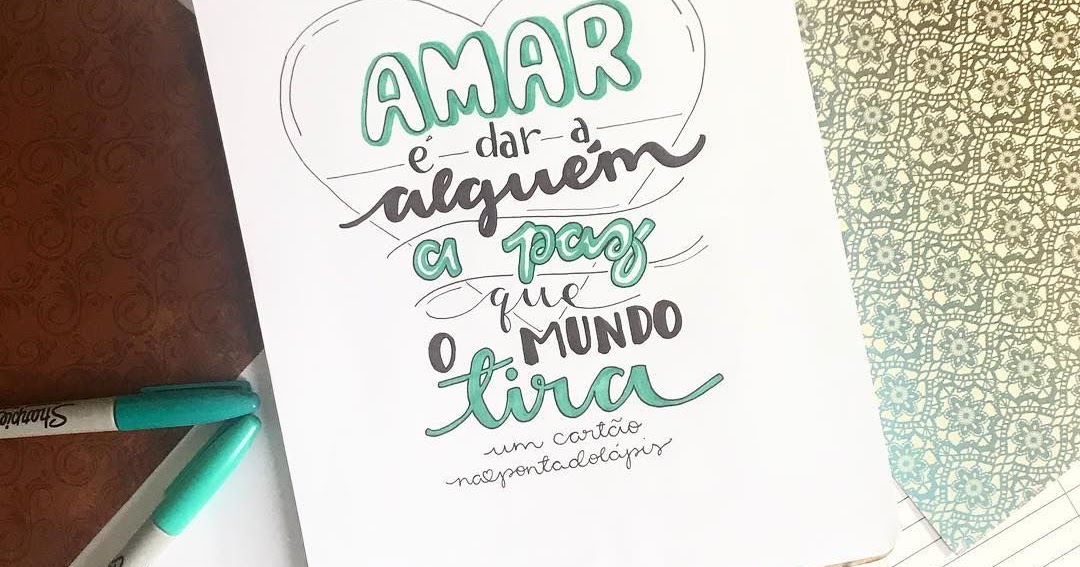 AMAR
é dar a
alguém
a paz
que
O MUNDO
tira
um cartão
napontadolápis
Sharpie